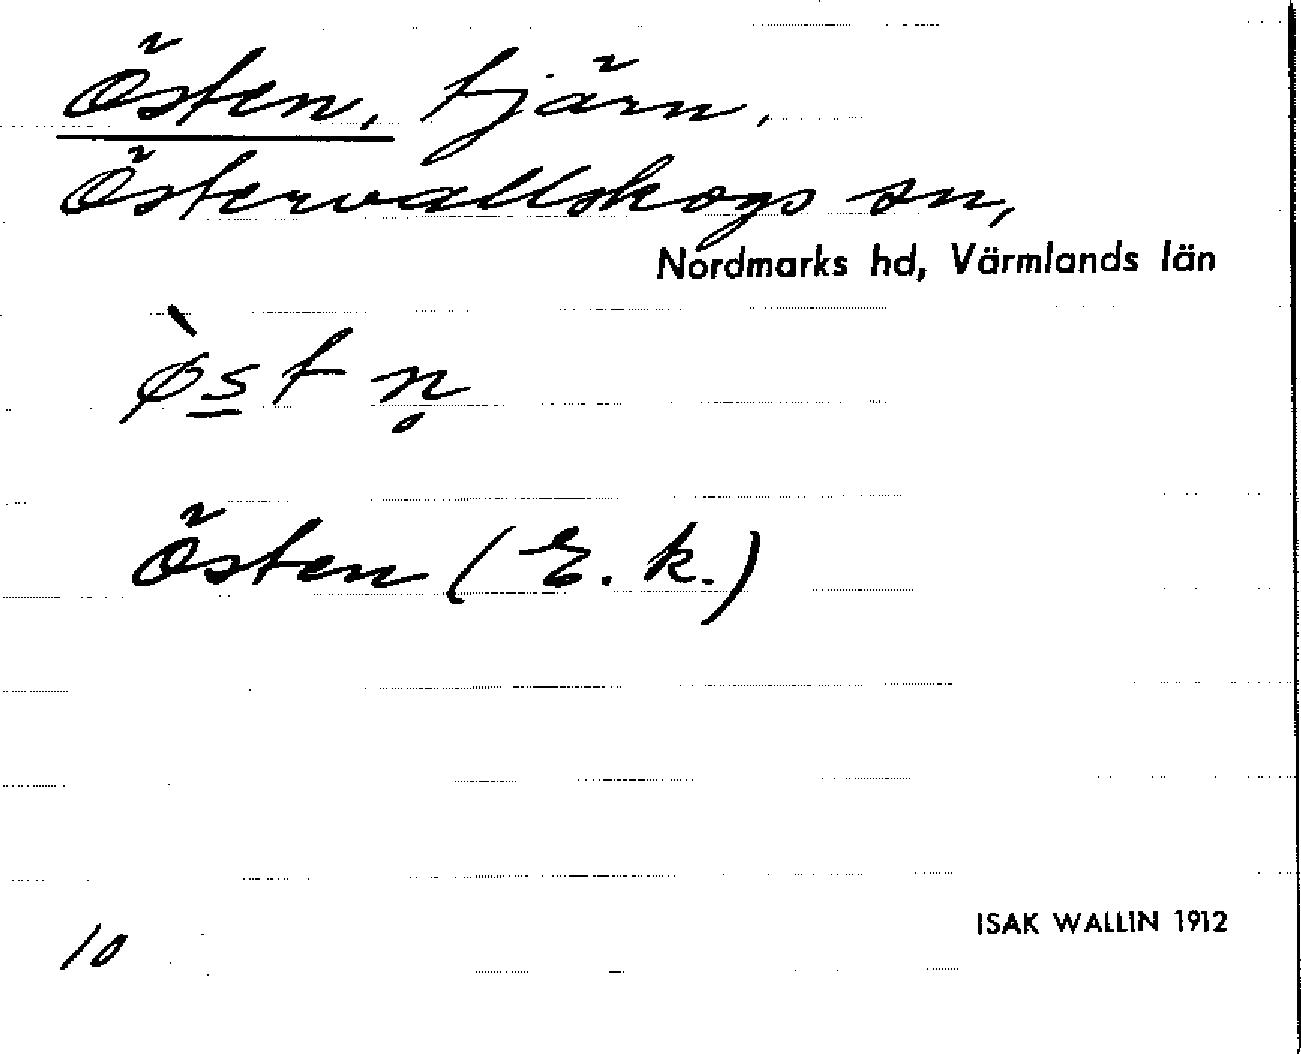 Östen, tjärn,
Östervallskogs sn,
Nordmarks hd, Värmlands län
ø̀s̲t n̥
Östen (E. k.)
10
ISAK WALLIN 1912